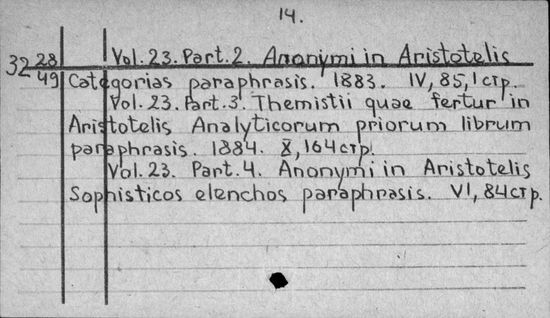 14.
32 28/49
Vol. 23. Part. 2. Anonymi in Aristotelis
Categorias paraphrasis. 1883. IV, 85, 1 стр.
Vol. 23. Part. 3. Themistii quae fertur in
Aristotelis Analyticorum priorum librum
paraphrasis. 1884. X, 164 стр.
Vol. 23. Part. 4. Anonymi in Aristotelis
Sophisticos elenchos paraphrasis. VI, 84 стр.